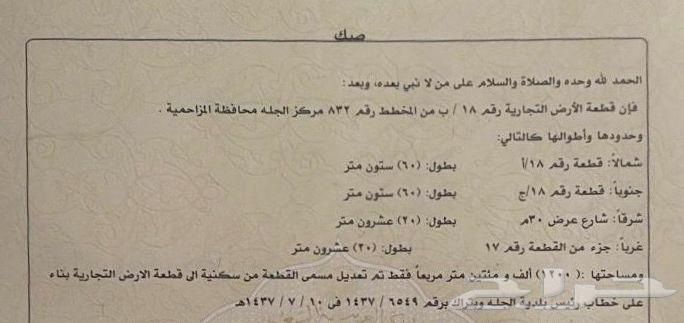 صك
الحمد لله وحده والصلاة والسلام على من لا نبي بعده، وبعد:
فإن قطعة الأرض التجارية رقم ١٨ / ب من المخطط رقم ٨٣٢ مركز الجله محافظة المزاحمية .
وحدودها وأطوالها كالتالي:
شمالاً: قطعة رقم ١٨/أ بطول: (٦٠) ستون متر
جنوباً: قطعة رقم ١٨/ج بطول: (٦٠) ستون متر
شرقاً: شارع عرض ٣٠م بطول: (٢٠) عشرون متر
غرباً: جزء من القطعة رقم ١٧ بطول: (٢٠) عشرون متر
ومساحتها :( ١٢٠٠) ألف و مئتين متر مربعاً فقط تم تعديل مسمى القطعة من سكنية الى قطعة الارض التجارية بناء
على خطاب رئيس بلدية الجله وبتراك برقم ٦٥٤٩ / ١٤٣٧ في ١٠ / ٧ / ١٤٣٧هـ
حراج